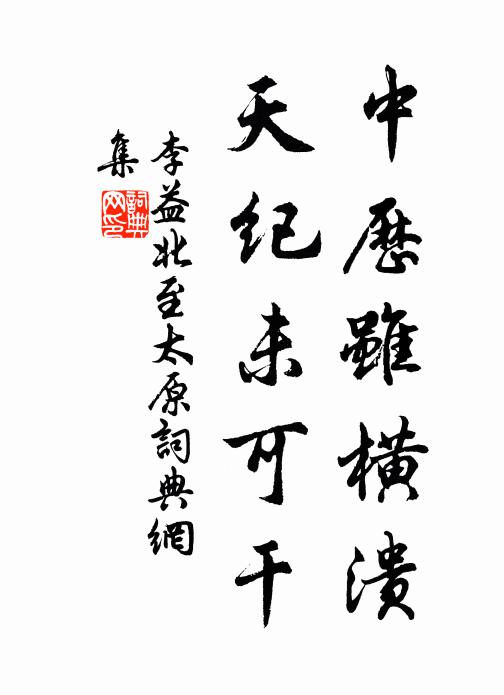 中歷雖橫潰
天紀未可干
李益北至太原詞典網
集
詞典网印